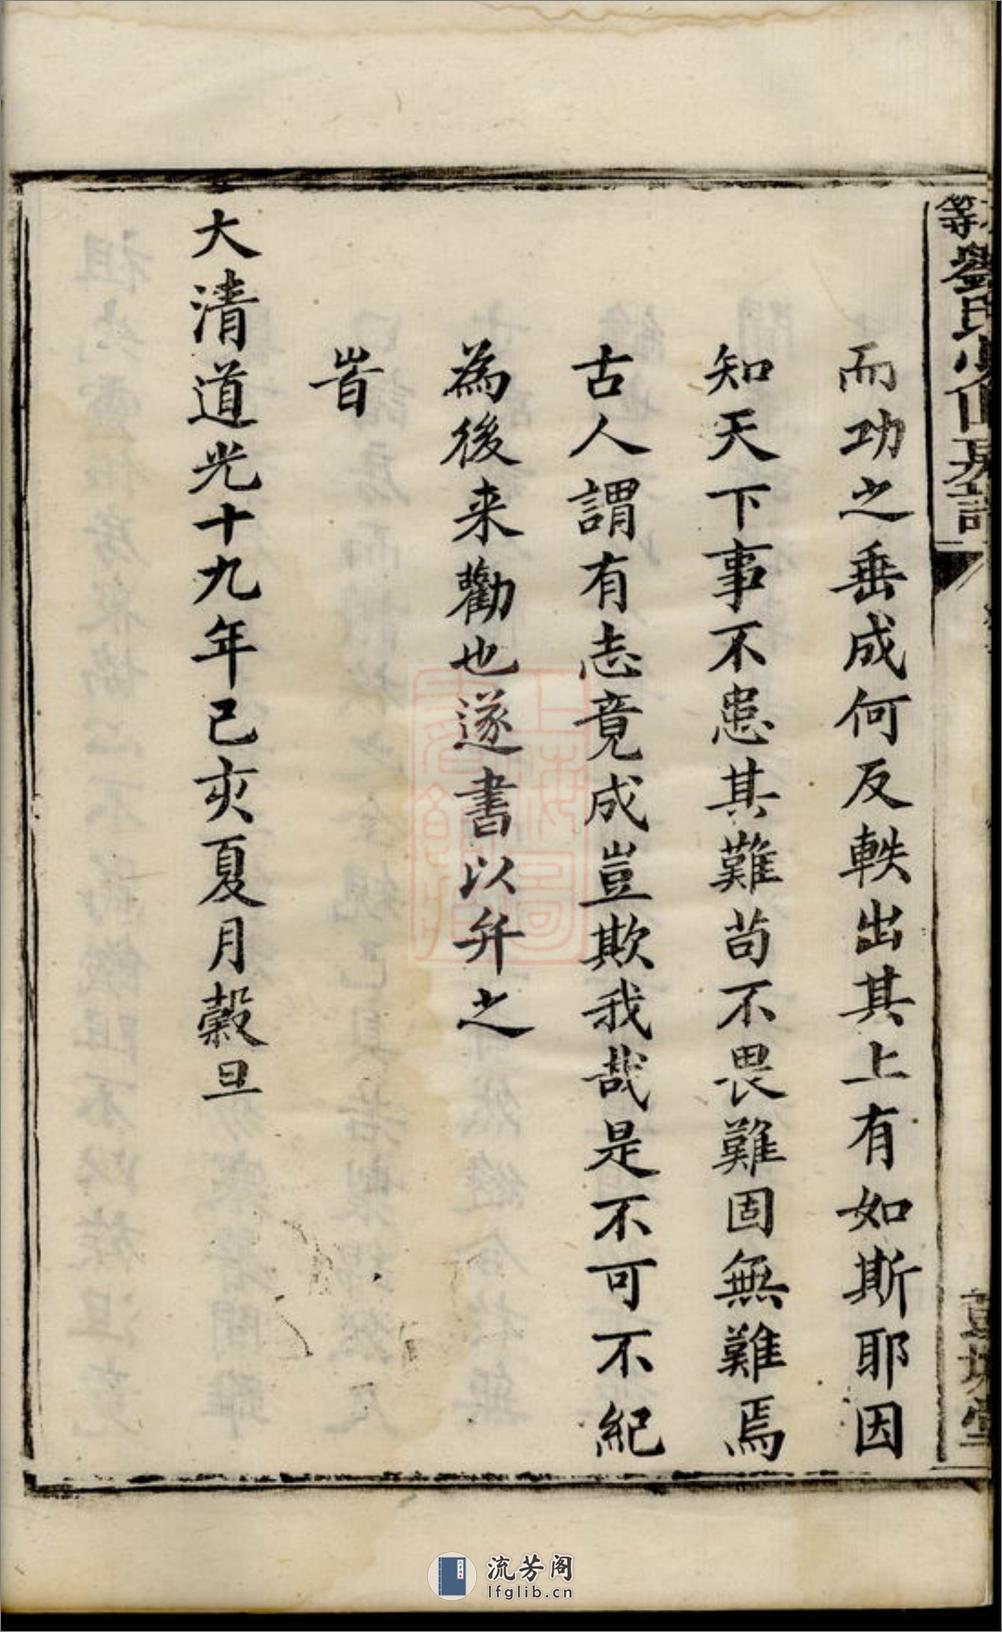 而功之垂成何反軼出其上有如斯耶因
知天下事不患其難苟不畏難固無難焉
古人謂有志竟成豈欺我哉是不可不紀
為後来勸也遂書以弁之
首
大清道光十九年己亥夏月穀旦
流芳阁
lfglib.cn